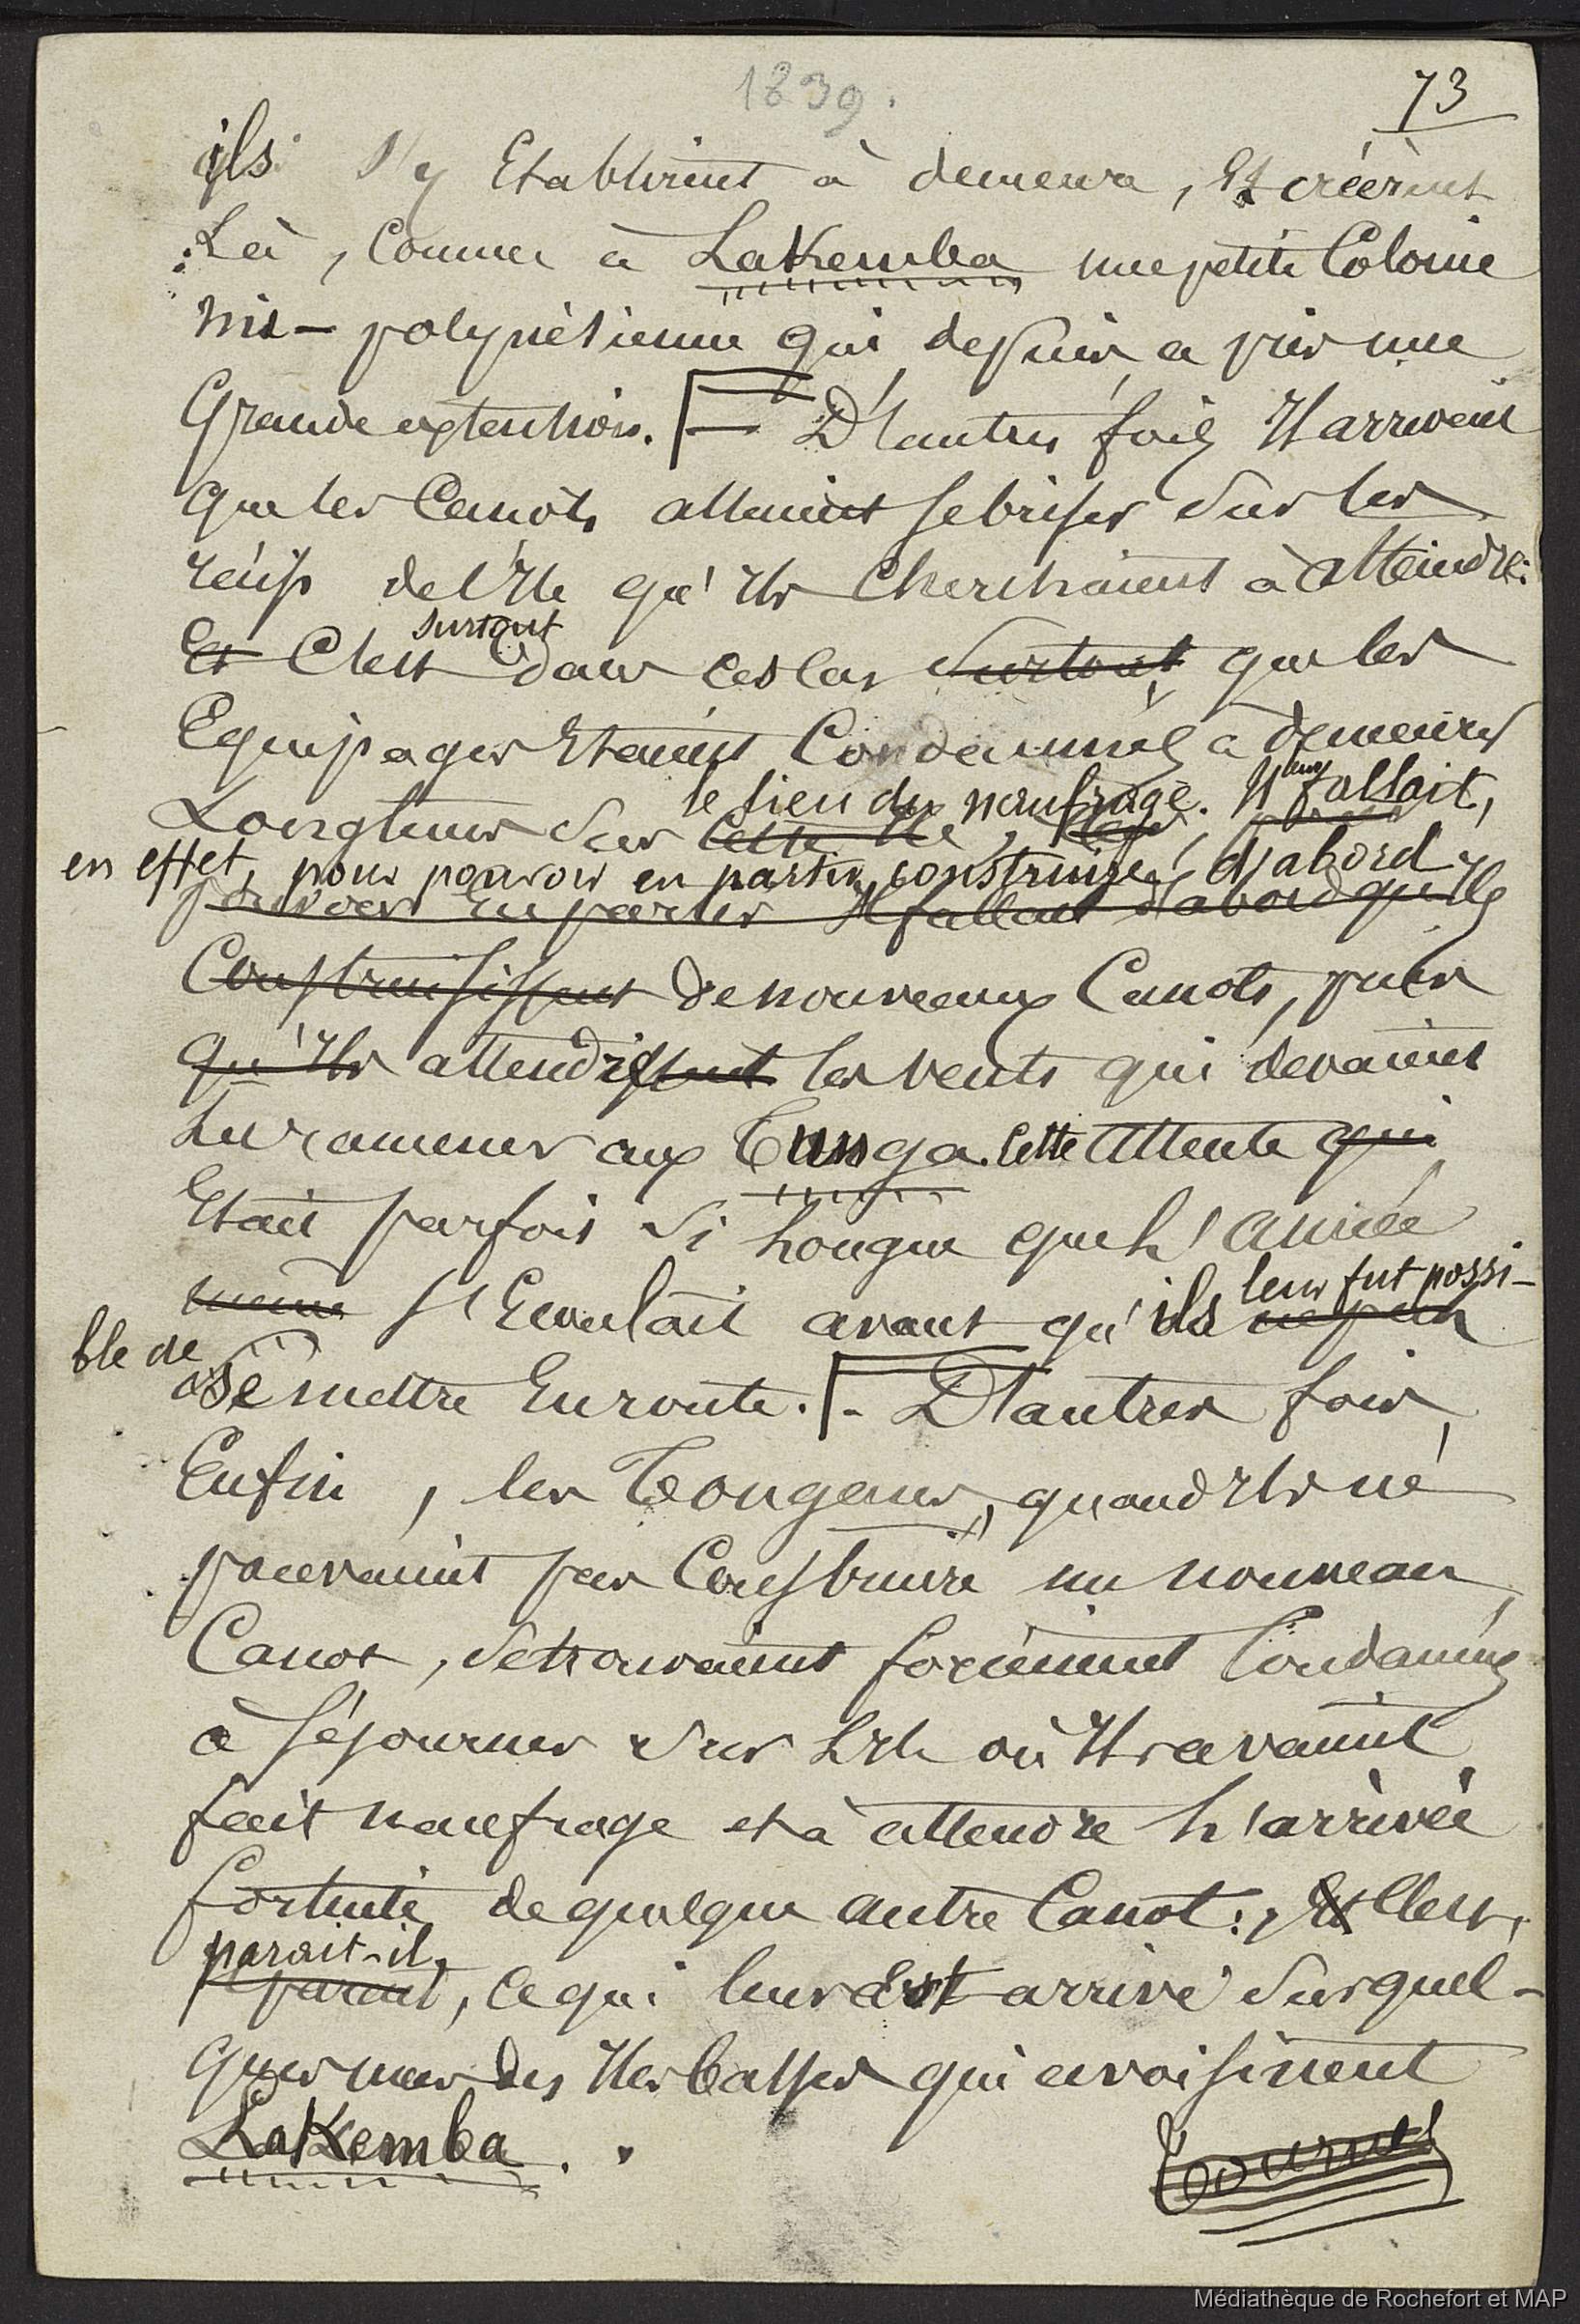 1839.
73
ils s'y Etablirent à demeure, Et créèrent
Là, Comme à Lakemba une petite Colonie
mis-polynésienne qui, depuis, a pris une
Grande extension. — D'autres fois, Il arrivait
que les Canots allaient se briser sur les
récifs de l'Ile qu'Ils Cherchaient à atteindre:
surtout
Et C'est dans ces cas surtout, que les
Equipages Etaient Condamnés à demeurer
le lieu du naufrage. Il leur fallait,
Longtemps sur cette Ile,
en effet, pour pouvoir en partir, construire d'abord
pouvoir En partir Il fallait d'abord qu'Ils
Construisissent de nouveaux Canots, puis
qu'Ils attendissent les vents qui devaient
les ramener aux Tunga. Cette Attente qui
Etait parfois si longue que l'année
leur fut possi-
même s'Ecoulait avant qu'ils
ble de
se mettre En route. - D'autres fois,
Enfin, les Tongans, quand Ils ne
pouvaient pas Construire un nouveau
Canot, se trouvaient forcément Condamnés
à séjourner sur l'Ile où Ils avaient
fait naufrage et à attendre l'arrivée
fortuite de quelque autre Canot: Et C'est,
parait-il,
parait, ce qui leur est arrivé sur quel-
ques unes des Iles basses qui avoisinent
Lakemba.
Médiathèque de Rochefort et MAP